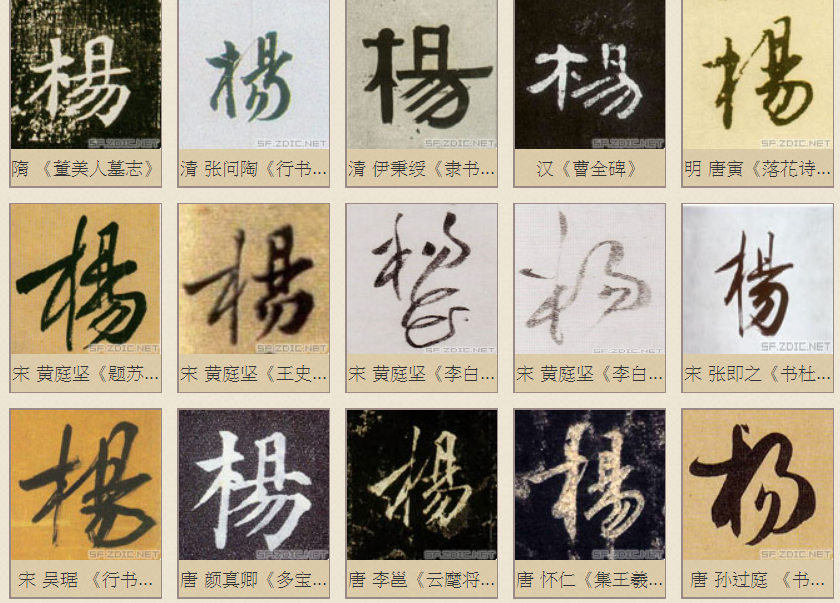 楊 楊 楊 楊 楊
SF.ZDIC.NET SF.ZDIC.NET SF.ZDIC.NET SF.ZDIC.NET SF.ZDIC.NET
隋 《董美人墓志》 清 张问陶《行书... 清 伊秉绶《隶书... 汉《曹全碑》 明 唐寅《落花诗...
楊 楊 楊 楊 楊
SF.ZDIC.NET SF.ZDIC.NET SF.ZDIC.NET SF.ZDIC.NET SF.ZDIC.NET
宋 黄庭坚《题苏... 宋 黄庭坚《王史... 宋 黄庭坚《李白... 宋 黄庭坚《李白... 宋 张即之《书杜...
楊 楊 楊 楊 楊
SF.ZDIC.NET SF.ZDIC.NET SF.ZDIC.NET SF.ZDIC.NET SF.ZDIC.NET
宋 吴琚 《行书... 唐 颜真卿《多宝... 唐 李邕《云麾将... 唐 怀仁《集王羲... 唐 孙过庭 《书...